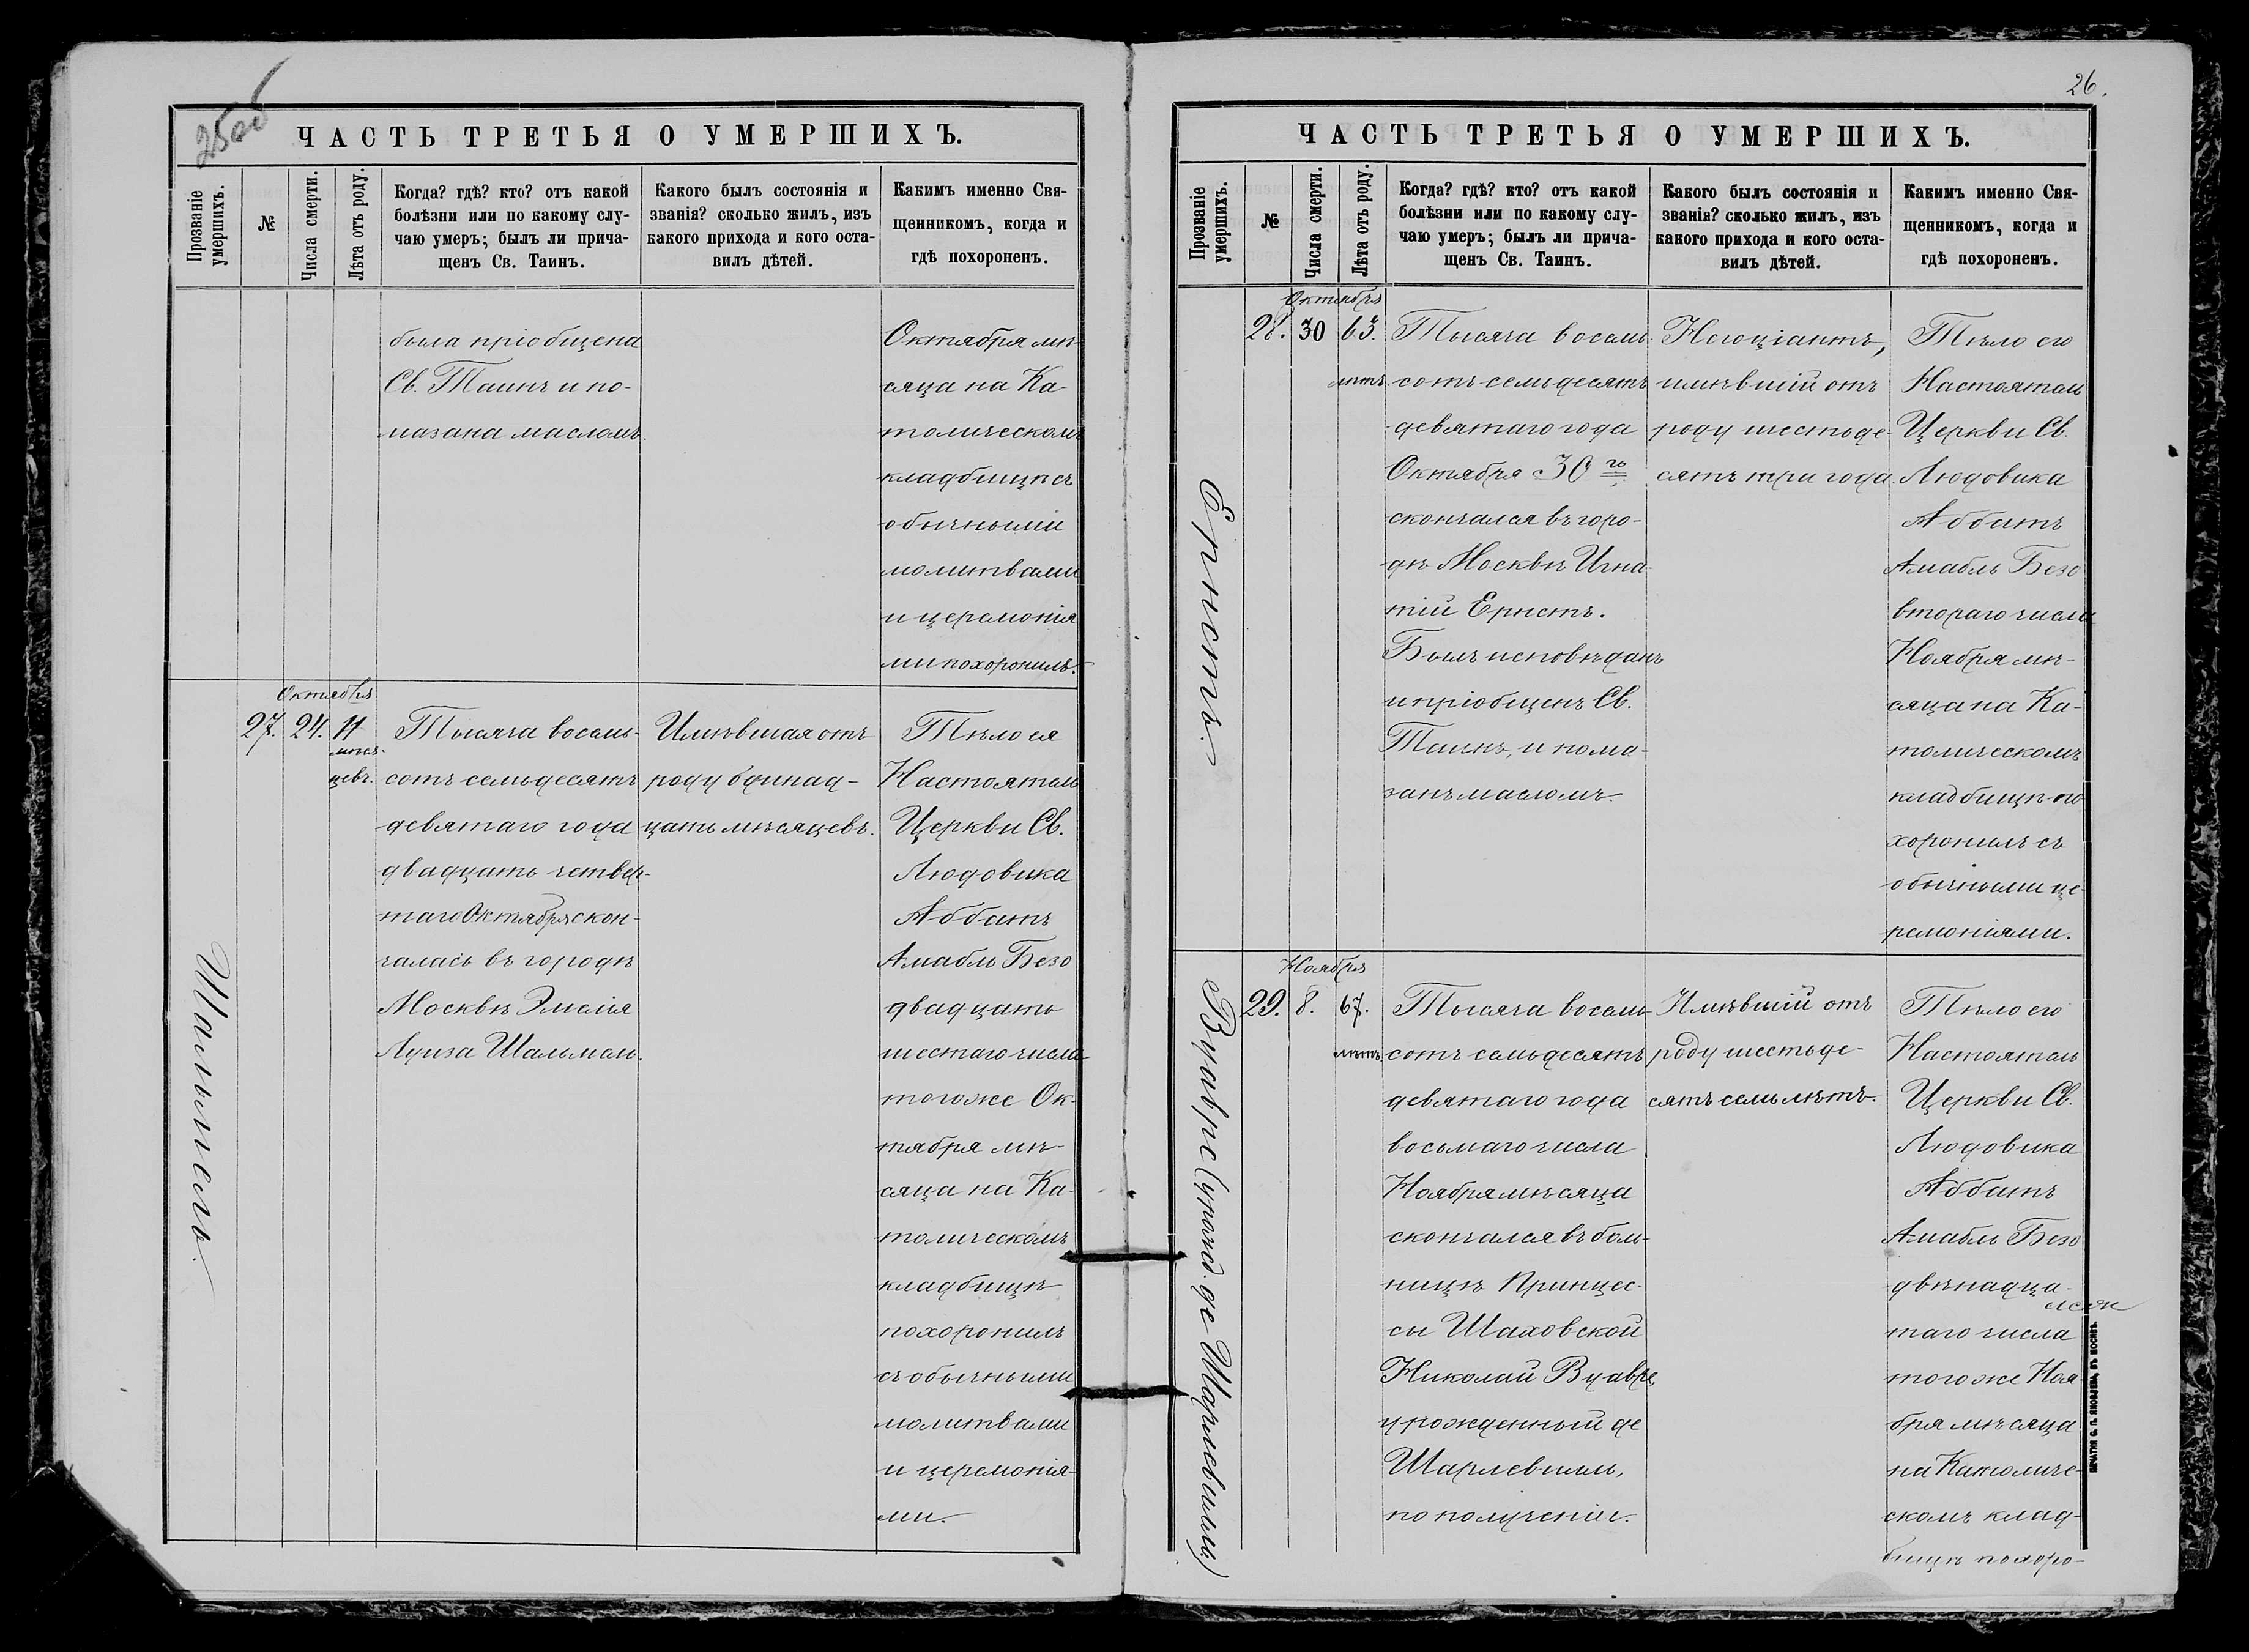 25 об
ЧАСТЬ ТРЕТЬЯ О УМЕРШИХЪ.
Прозваніе умершихъ.
№
Числа смерти.
Лѣта отъ роду.
Когда? гдѣ? кто? отъ какой
болѣзни или по какому слу-
чаю умеръ; былъ ли прича-
щенъ Св. Таинъ.
Какого былъ состоянія и
званія? сколько жилъ, изъ
какого прихода и кого оста-
вилъ дѣтей.
Какимъ именно Свя-
щенникомъ, когда и
гдѣ похороненъ.
была пріобщена
Св. Таинъ и по-
мазана масломъ.
Октября мѣ-
сяца на Ка-
толическомъ
кладбищѣ съ
обычными
молитвами
и церемонія
ми похоронилъ.
Шальмель.
Октября
27.
24.
11
мѣся-
цевъ.
Тысяча восемь-
сотъ семьдесятъ
девятаго года
двадцать четвер-
таго Октября скон-
чалась въ городѣ
Москвѣ Эмилія
Луиза Шальмель.
Имѣвшая отъ
роду одинад-
цать мѣсяцевъ.
Тѣло ея
Настоятель
Церкви Св.
Людовика
Аббатъ
Амабль Безо
двадцать
шестаго числа
того же Ок-
тября мѣ-
сяца на Ка-
толическомъ
кладбищѣ
похоронилъ
съ обычными
молитвами
и церемонія-
ми.
26.
ЧАСТЬ ТРЕТЬЯ О УМЕРШИХЪ.
Прозваніе умершихъ.
№
Числа смерти.
Лѣта отъ роду.
Когда? гдѣ? кто? отъ какой
болѣзни или по какому слу-
чаю умеръ; былъ ли прича-
щенъ Св. Таинъ.
Какого былъ состоянія и
званія? сколько жилъ, изъ
какого прихода и кого оста-
вилъ дѣтей.
Какимъ именно Свя-
щенникомъ, когда и
гдѣ похороненъ.
Ернстъ.
Октября
28.
30
63.
лѣтъ.
Тысяча восемь-
сотъ семьдесятъ
девятаго года
Октября 30го
скончался въ горо-
дѣ Москвѣ Игна-
тій Ернстъ.
Былъ исповѣданъ
и пріобщенъ Св.
Таинъ, и пома-
занъ масломъ.
Негоціантъ,
имѣвшій отъ
роду шестьде-
сятъ три года.
Тѣло его
Настоятель
Церкви Св.
Людовика
Аббатъ
Амабль Безо
втораго числа
Ноября мѣ-
сяца на Ка-
толическомъ
кладбищѣ по
хоронилъ съ
обычными це-
ремоніями.
Вуавре (урожд. де Шарлевиль.)
Ноября
29.
8.
67.
лѣтъ.
Тысяча восемь-
сотъ семьдесятъ
девятаго года
восьмаго числа
Ноября мѣсяца
скончался въ боль-
ницѣ Принцес-
сы Шаховской
Николай Вуавре,
урожденный де
Шарлевиль,
по полученіи.
Имѣвшій отъ
роду шестьде-
сятъ семь лѣтъ.
Тѣло его
Настоятель
Церкви Св.
Людовика
Аббатъ
Амабль Безо
двѣнадца-
таго числа
того же Ноя
бря мѣсяца
на Католиче-
скомъ клад-
бищѣ похоро-